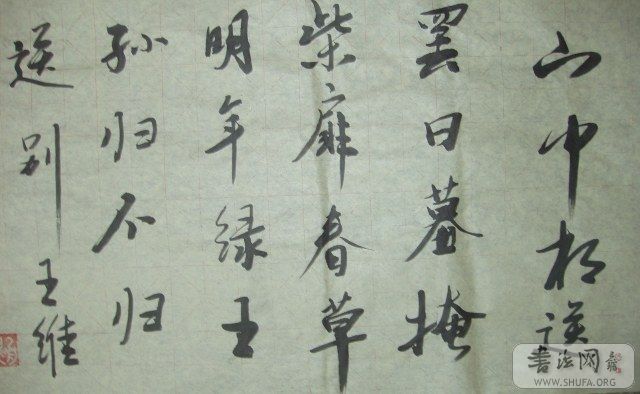 山中相送
罢日暮掩
柴扉春草
明年绿王
孙归不归
送别王维
書法网
WWW.SHUFA.ORG